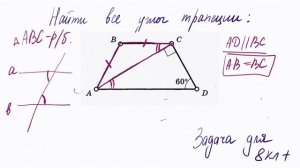 Найти все углы трапеции:
△ABC-р/б.
a
в
B
C
A
D
60°
AD||BC
AB=BC
Задача для
8кл+